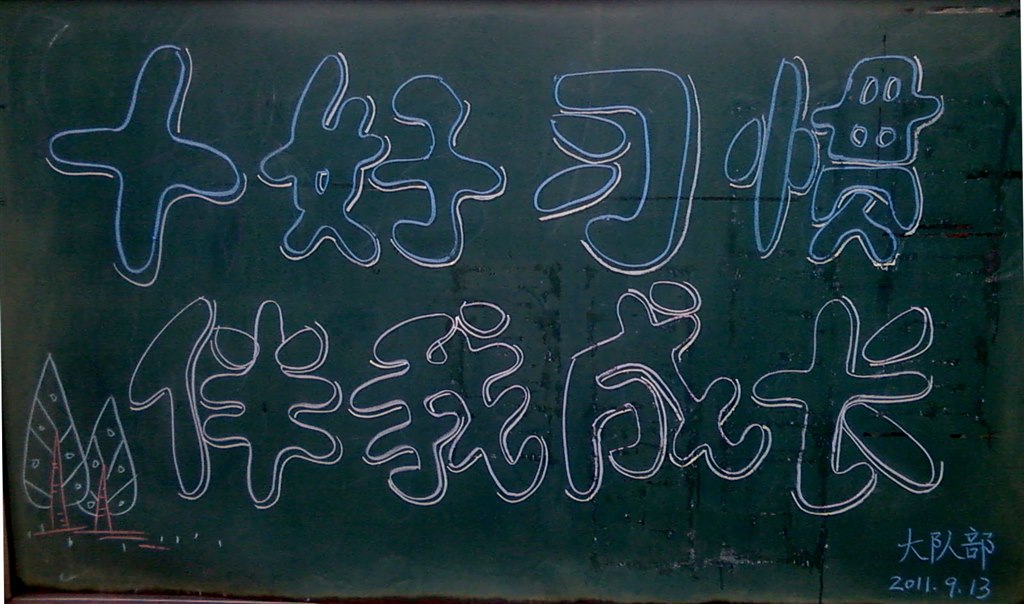 十好习惯
伴我成长
大队部
2011.9.13